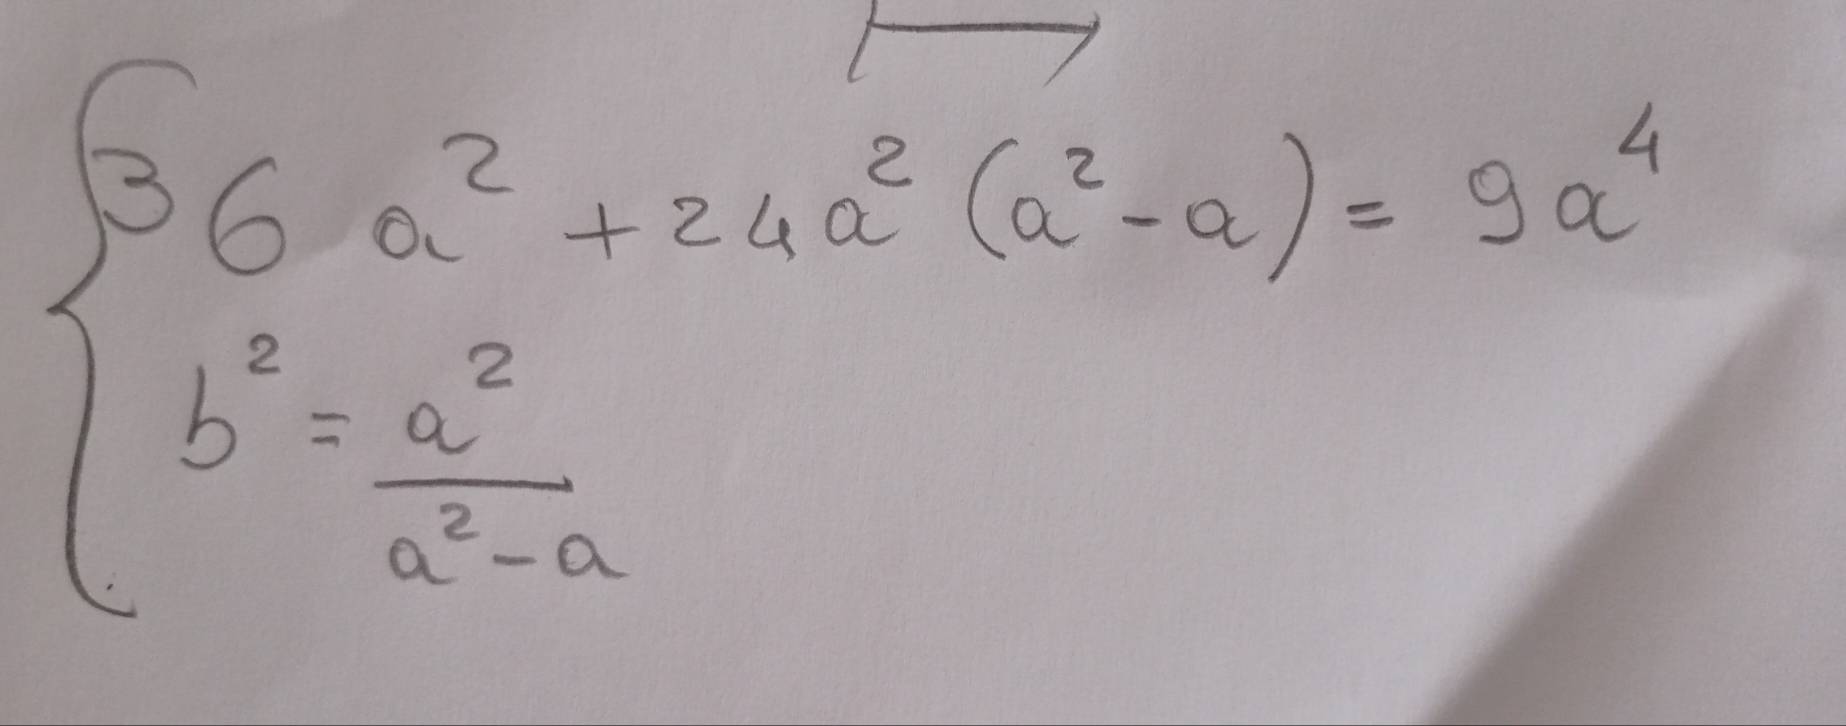 36 a² + 24a² (a² - a) = 9a⁴
b² = a² / a² - a